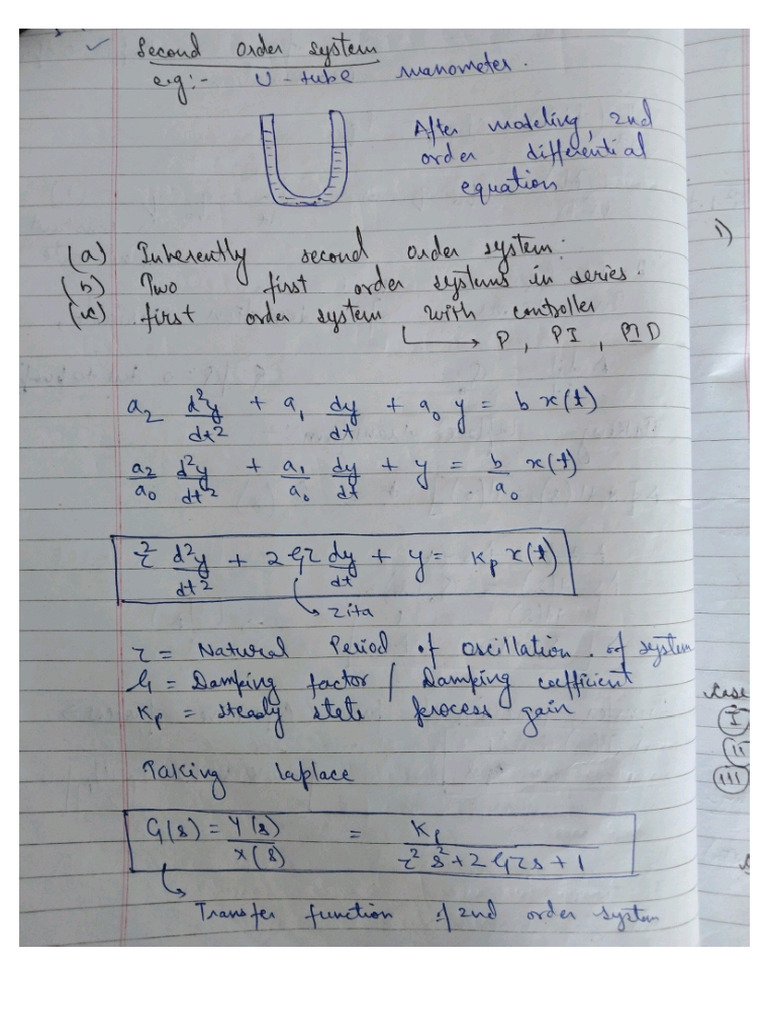 ✓ Second order system
e.g:- U-tube manometer.
After modeling, 2nd
order differential
equation
(a) Inherently second order system.
(b) Two first order systems in series.
(c) first order system with controller
→ P, PI, PID
a₂ d²y/dt² + a₁ dy/dt + a₀ y = b x(t)
a₂/a₀ d²y/dt² + a₁/a₀ dy/dt + y = b/a₀ x(t)
τ² d²y/dt² + 2ξτ dy/dt + y = Kp x(t)
→ zita
τ = Natural Period of oscillation of system
ξ = Damping factor / Damping coefficient
Kp = steady state process gain
Taking laplace
G(s) = Y(s)/X(s) = Kp/(τ²s² + 2ξτs + 1)
→ Transfer function of 2nd order system
1)
Case
I
II
III